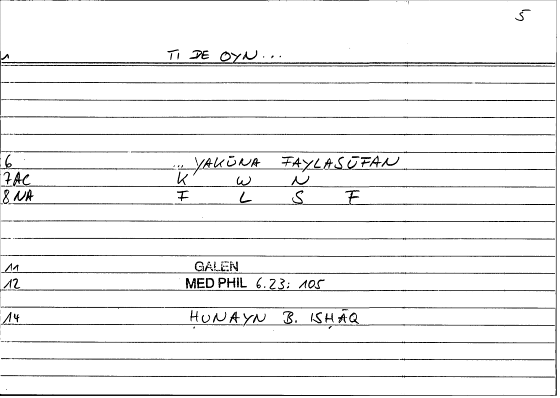 5
1 TI DE OYN...
6 ... YAKŪNA FAYLASŪFAN
7AC K W N
8NA F L S F
11 GALEN
12 MED PHIL 6.23: 105
14 ḤUNAYN B. ISḤĀQ